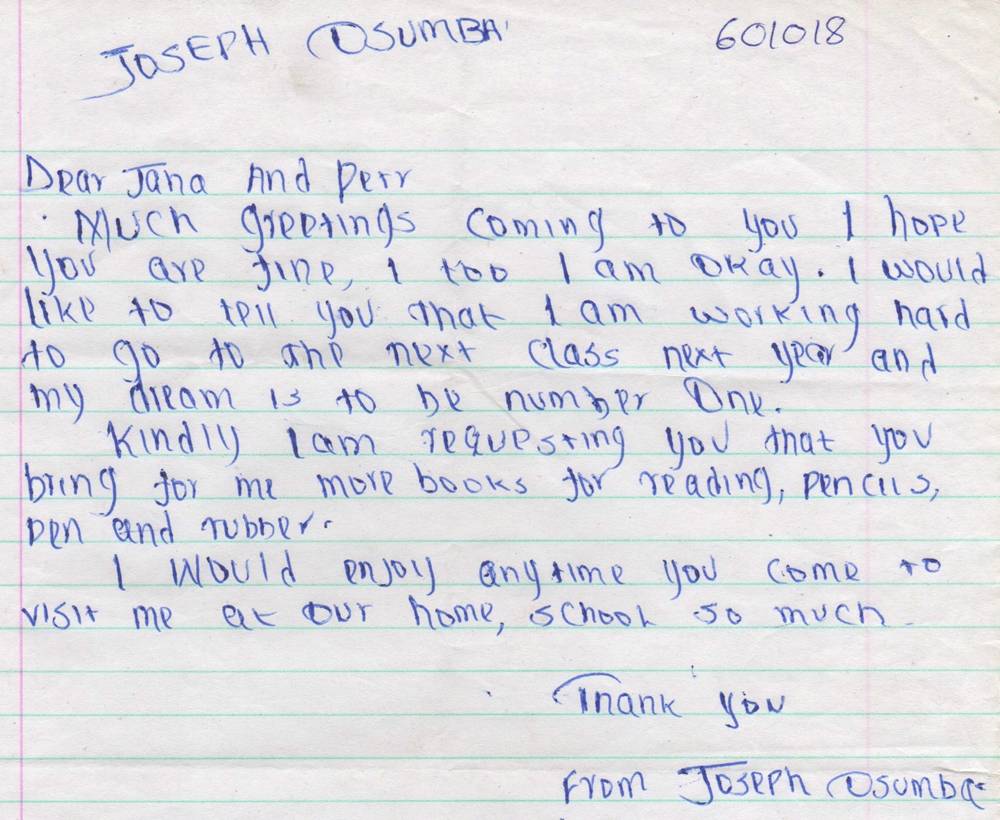 JOSEPH OSUMBA 601018
Dear Jana And Perr
Much greetings coming to you I hope
you are fine, I too I am okay. I would
like to tell you that I am working hard
to go to the next class next year and
my dream is to be number One.
Kindly I am requesting you that you
bring for me more books for reading, pencils,
pen and rubber.
I would enjoy anytime you come to
visit me at our home, school so much.
Thank you
From Joseph Osumba